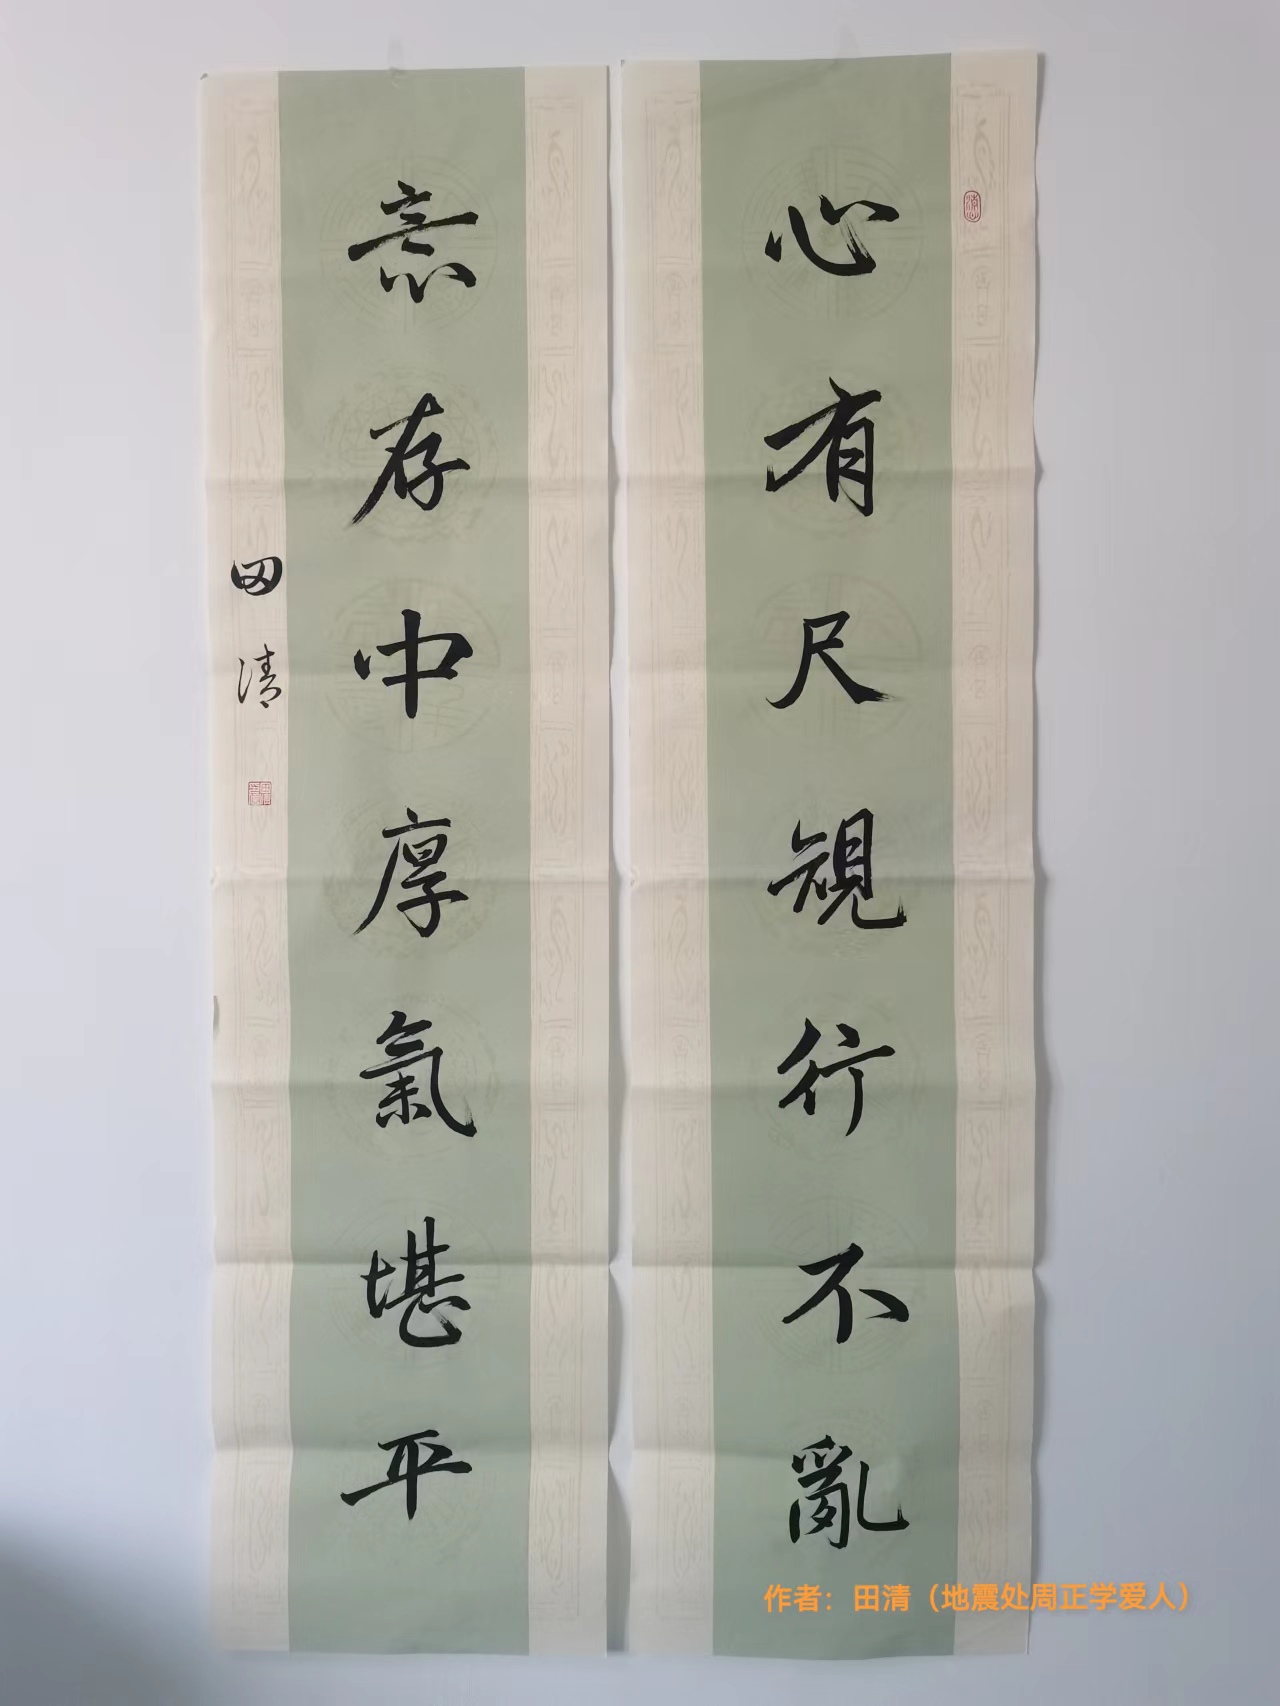 心有尺規行不亂
意存中厚氣堪平
田清
作者：田清（地震处周正学爱人）